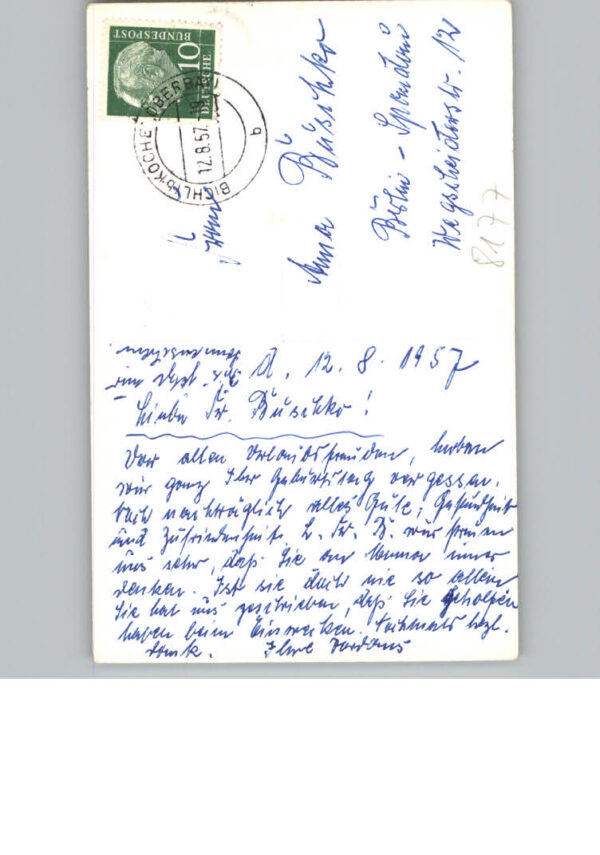 DEUTSCHE
BUNDESPOST
10
BICHL b. KOCHEL (OBERBAY)
12.8.57.
b
Frau
Anna Büschko
Berlin - Spandau
Wagscheiderstr. 12
8177
d. 12.8.1957
Liebe Fr. Büschko!
Vor allen Urlaubsfreuden, haben
wir ganz Ihr Geburtstag vergessen.
Noch nachträglich alles Gute, Gesundheit
und Zufriedenheit. L. Fr. B. wir freuen
uns sehr, daß Sie an immer
denken. Ist sie doch nie so allein
Sie hat uns geschrieben, daß Sie geholfen
haben beim Einwecken. Nochmals herzl.
dank. Ihre